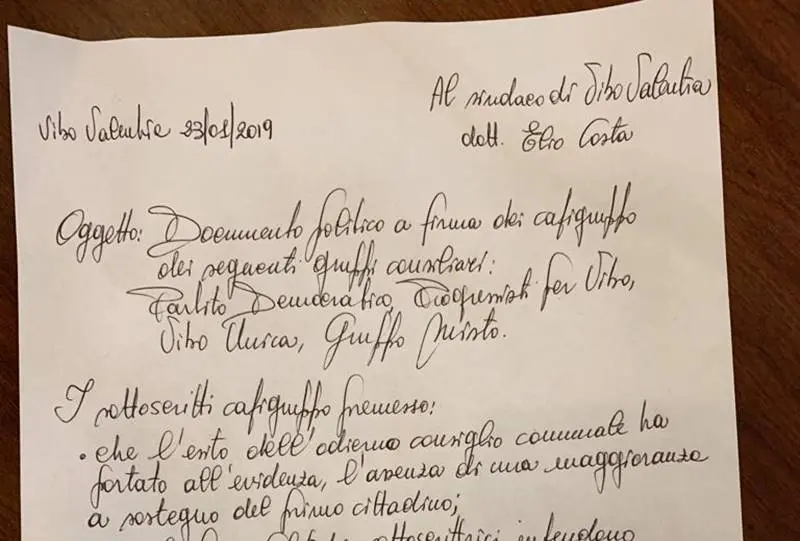 Al sindaco di Vibo Valentia
dott. Elio Costa
Vibo Valentia 23/01/2019
Oggetto: Documento politico a firma dei capigruppo
dei seguenti gruppi consiliari:
Partito Democratico, Progressisti per Vibo,
Vibo Unica, Gruppo Misto.
I sottoscritti capigruppo premesso:
• che l'esito dell'odierno consiglio comunale ha
portato all'evidenza, l'assenza di una maggioranza
a sostegno del primo cittadino;
sottoscrittrici intendono